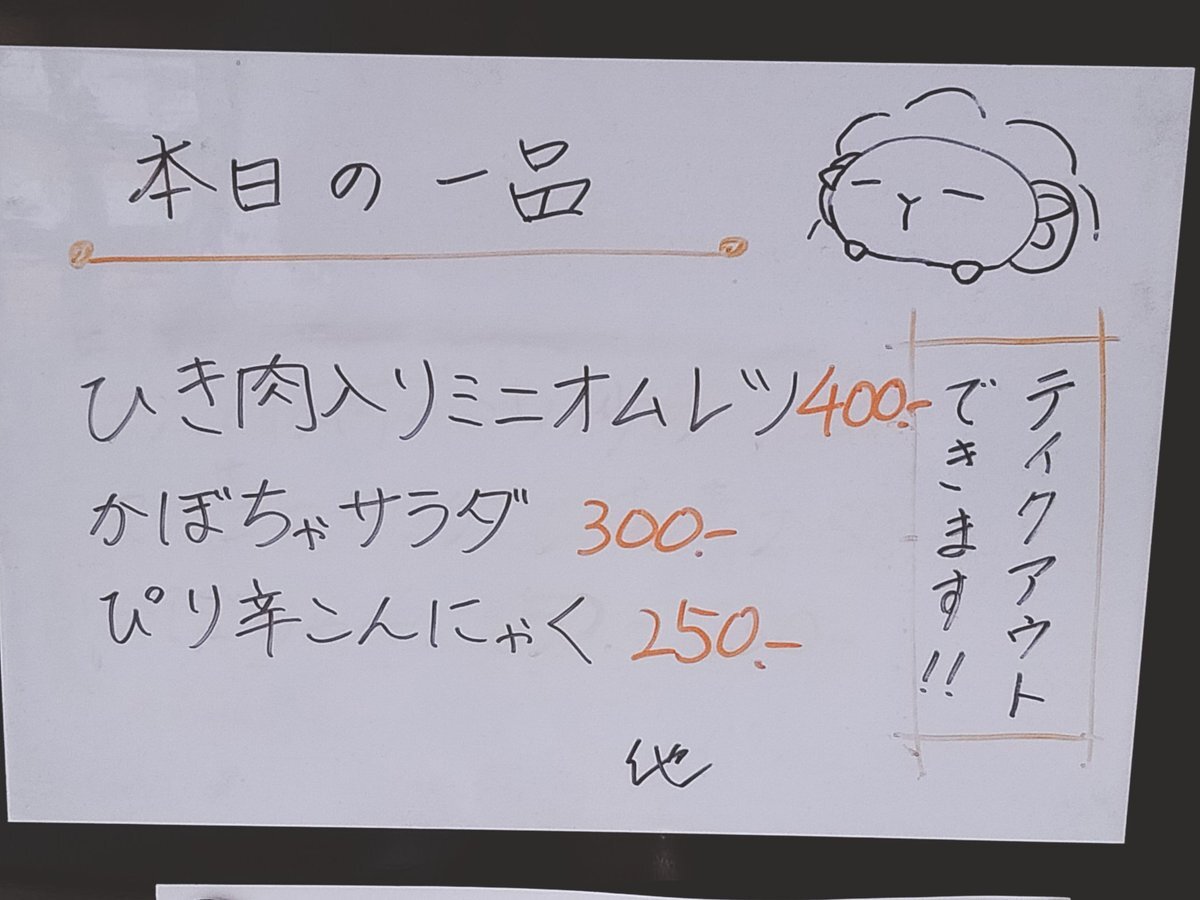 本日の一品
ひき肉入りミニオムレツ400.-
かぼちゃサラダ 300.-
ぴり辛こんにゃく 250.-
他
テイクアウト
できます!!